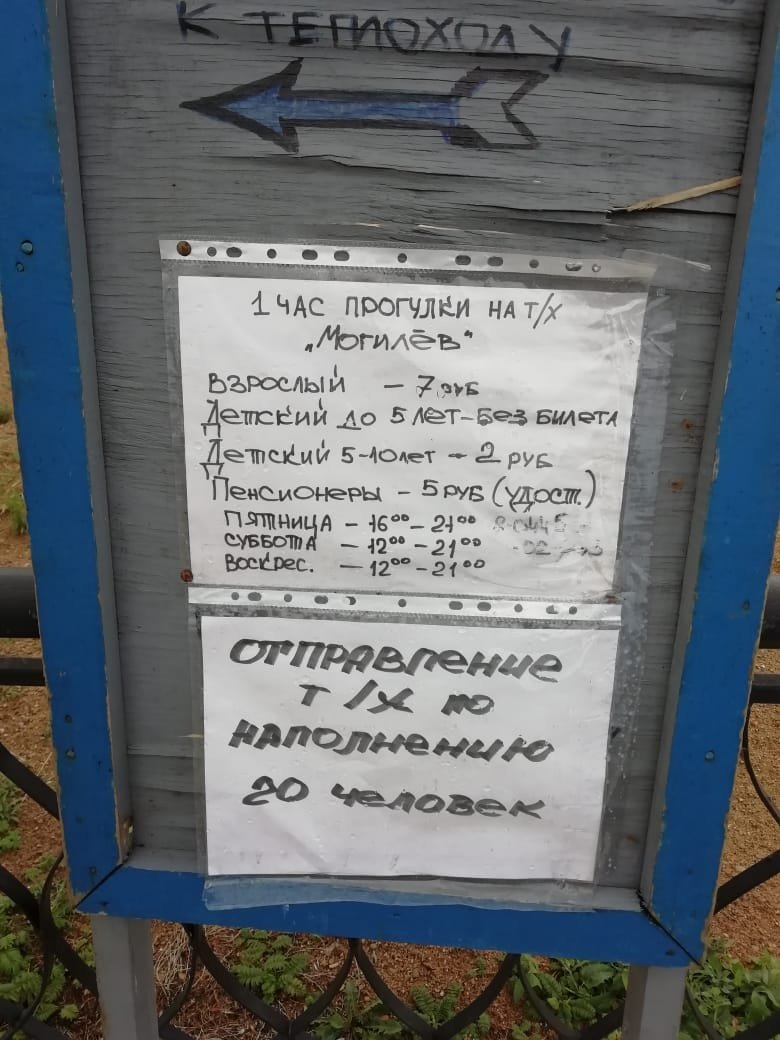 К ТЕПЛОХОДУ
1 ЧАС ПРОГУЛКИ НА Т/Х
„МОГИЛЁВ“
ВЗРОСЛЫЙ – 7 РУБ
ДЕТСКИЙ ДО 5 ЛЕТ – БЕЗ БИЛЕТА
ДЕТСКИЙ 5-10 ЛЕТ – 2 РУБ
ПЕНСИОНЕРЫ – 5 РУБ (УДОСТ.)
ПЯТНИЦА – 16⁰⁰ – 21⁰⁰
СУББОТА – 12⁰⁰ – 21⁰⁰
ВОСКРЕС. – 12⁰⁰ – 21⁰⁰
ОТПРАВЛЕНИЕ
Т/Х ПО
НАПОЛНЕНИЮ
20 ЧЕЛОВЕК